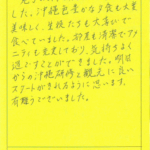 した。沖縄色豊かな夕食も大変
美味しく、生徒たちも大喜びで
食べていました。部屋も清潔でアメ
ニティも充実しており、気持ちよく
過ごすことができました。明日
からの沖縄研修と観光に良い
スタートがきれるように思います。
有難うございました。